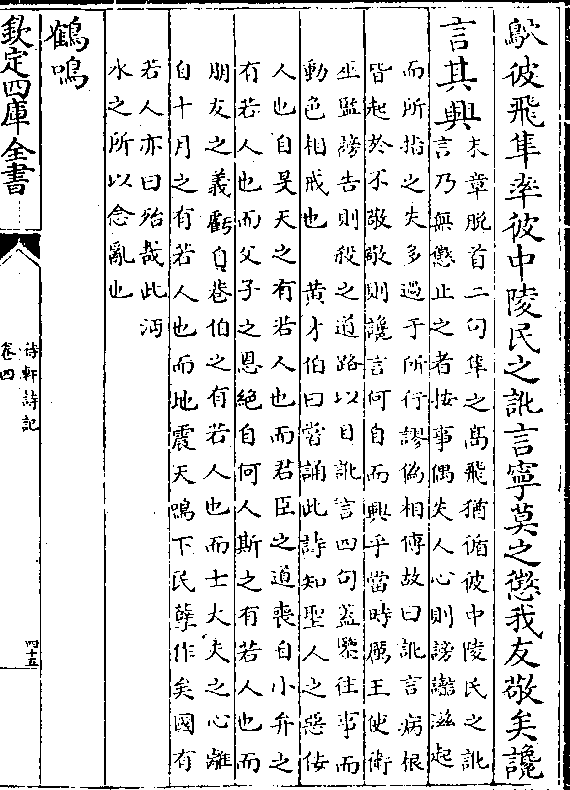 鴥彼飛隼率彼中陵民之訛言寧莫之懲我友敬矣讒
言其興
末章脱首二句隼之髙飛猶循彼中陵民之訛
言乃無懲止之者按事偶失人心則謗讟滋起
而所指之失多過于所行謬偽相傳故曰訛言病根
皆起於不敬敬則讒言何自而興乎當時厲王使術
巫監謗告則殺之道路以目訛言四句蓋鑒往事而
動色相戒也　黄才伯曰嘗誦此詩知聖人之惡佞
人也自旻天之有若人也而君臣之道喪自小弁之
有若人也而父子之恩絶自何人斯之有若人也而
朋友之義虧自巷伯之有若人也而士大夫之心離
自十月之有若人也而地震天鳴下民孽作矣國有
若人亦曰殆哉此沔
水之所以念亂也
鶴鳴
欽定四庫全書
待軒詩記
卷四
四十五